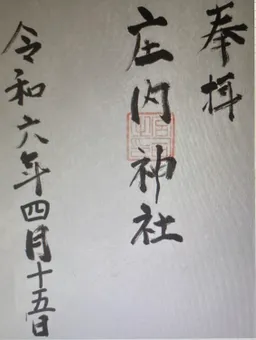 奉拝
庄内神社
令和六年四月十五日